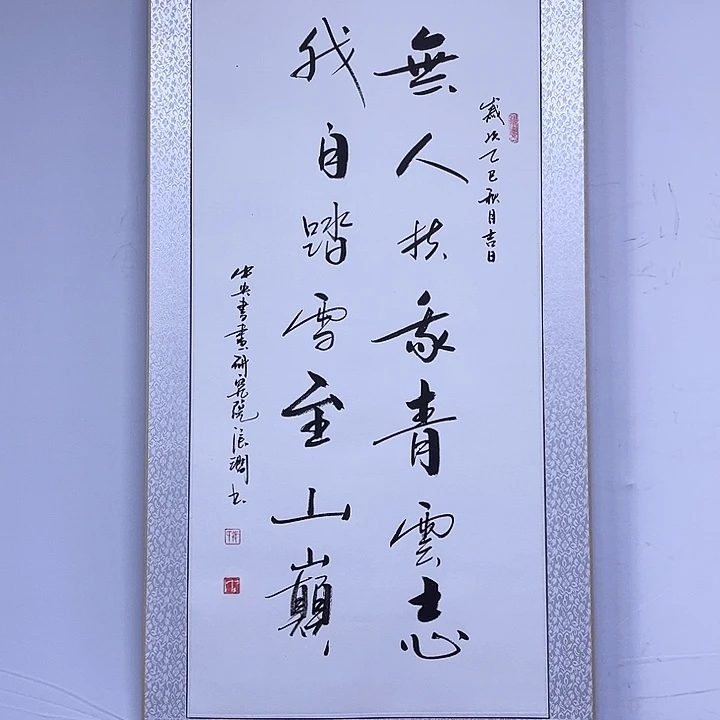 歲次乙巳秋月吉日
無人扶我青雲志
我自踏雪至山巔
中央書畫研究院張潤書